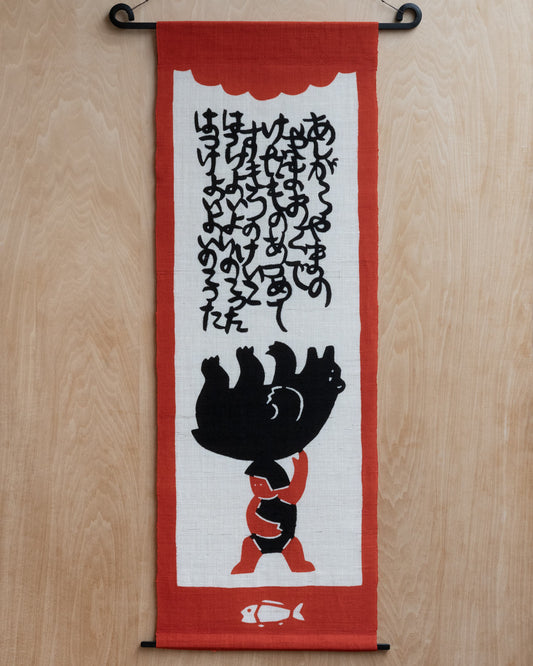 あしがらやまの
やまのおくで
けだものあつめて
すまうのけいこ
はっけよいよいのこった
はっけよいよいのこった